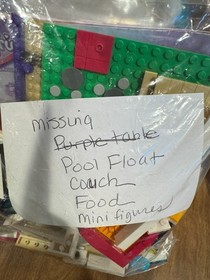 missing
Purple table
Pool Float
Couch
Food
mini figures